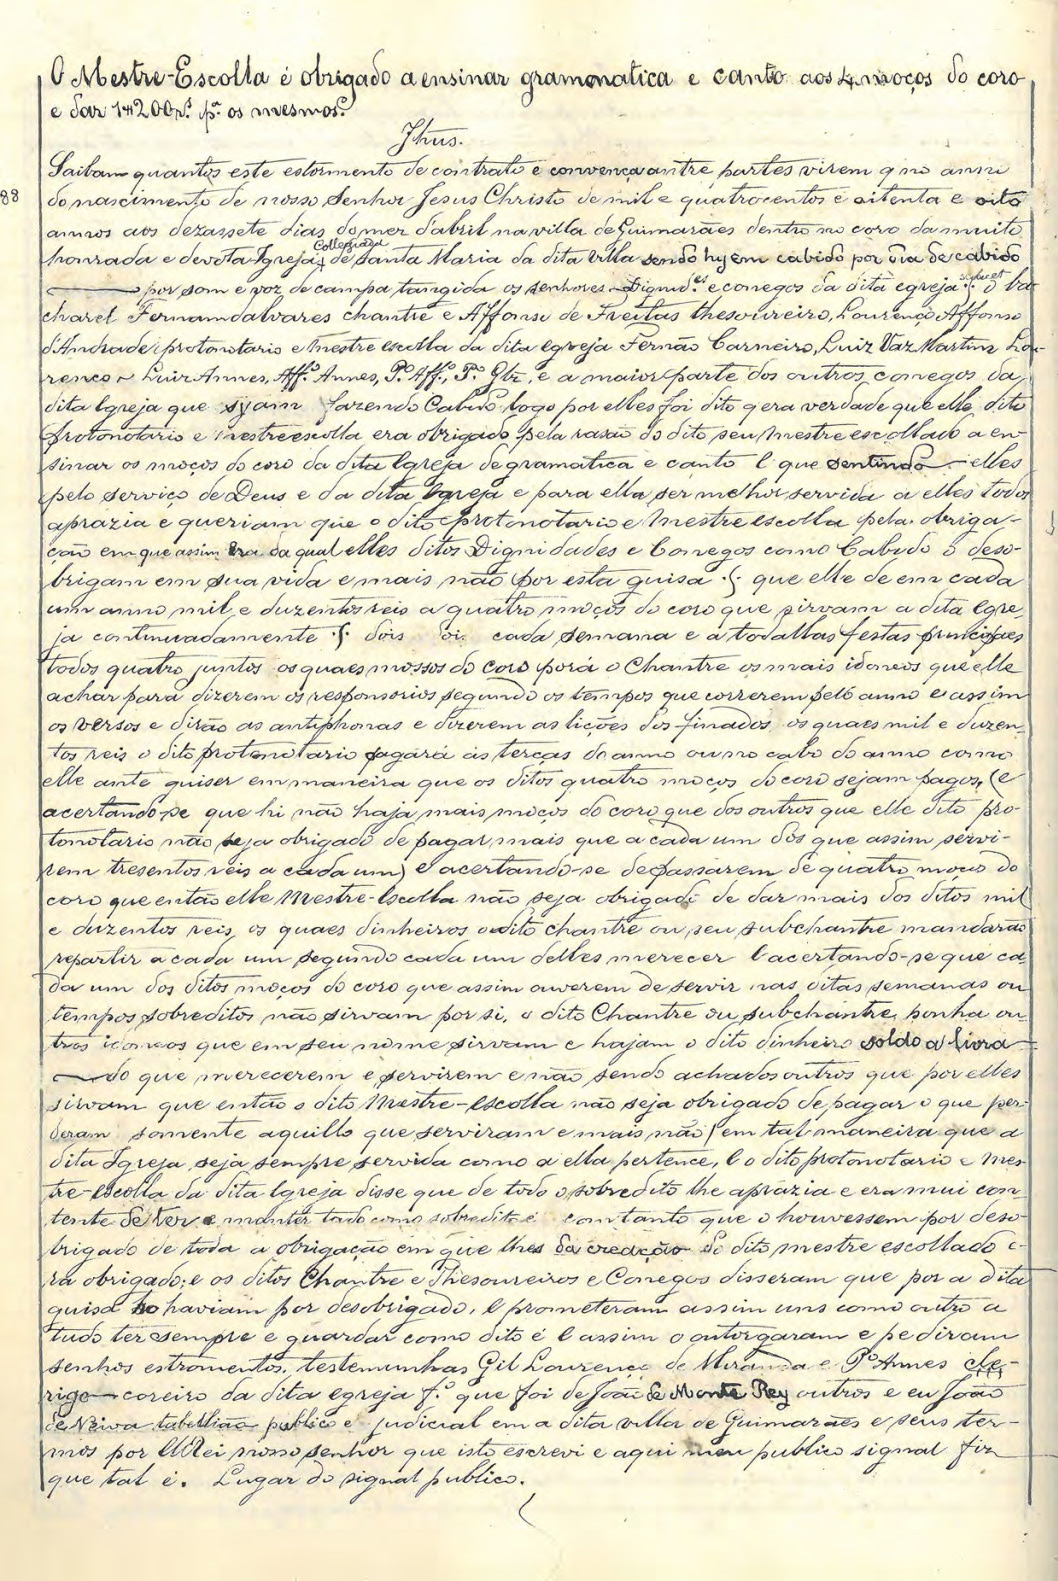 O Mestre-Escolla é obrigado a ensinar grammatica e canto aos 4 moços do coro
e dar 1#200rs. pa. os mesmos.
Jhus.
Saibam quantos este estormento de contrato e convença antre partes virem q no anno
88
do nascimento de nosso Senhor Jesus Christo de mil e quatrocentos e oitenta e oito
annos aos dezassete dias do mez dabril na villa de Guimarães dentro no coro da muito
honrada e devota Igreja Collegiada de Santa Maria da dita villa sendo hy em cabido por via de cabido
por som e voz de campa tangida os senhores Dignides. e conegos da dita egreja scilicet o ba-
charel Fernamdalvares chantre e Affonso de Freitas thesoureiro, Lourenço Affonso
d'Andrade protonotario e mestre escolla da dita egreja Fernão Carneiro, Luiz Vaz Martim Lou-
renço Luiz Annes, Affo. Annes, Po. Affo., Po. Glz, e a maior parte dos outros conegos da
dita Igreja que syam fazendo Cabido logo por elles foi dito q era verdade que elle dito
protonotario e mestreescolla era obrigado pela rasão do dito seu mestre escollado a en-
sinar os moços do coro da dita Igreja de gramatica e canto e que sentindo elles
pelo serviço de Deus e da dita Igreja e para ella ser melhor servida a elles todos
aprazia e queriam que o dito protonotario e Mestre escolla pela obriga-
ção em que assim era da qual elles ditos Dignidades e Conegos como Cabido o deso-
brigam em sua vida e mais não por esta guisa .s. que elle de em cada
um anno mil e duzentos reis a quatro moços do coro que sirvam a dita Egre-
ja continuadamente .s. dois cada semana e a todallas festas principaes
todos quatro juntos os quaes mossos do coro porá o Chantre os mais idoneos que elle
achar para dizerem os responsorios segundo os tempos que correrem pelo anno e assim
os versos e dirão as antiphonas e dizerem as lições dos finados, os quaes mil e duzen-
tos reis o dito protonotario pagará ás terças do anno ou no cabo do anno como
elle ante quiser em maneira que os ditos quatro moços do coro sejam pagos, (e
acertando-se que hi não haja mais moços do coro que dos outros que elle dito pro-
tonotario não seja obrigado de pagar mais que a cada um dos que assim servi-
rem tresentos reis a cada um) e acertando-se de passarem de quatro moços do
coro que então elle Mestre-Escolla não seja obrigado de dar mais dos ditos mil
e duzentos reis, os quaes dinheiros o dito chantre ou seu subchantre mandarão
repartir a cada um segundo cada um delles merecer E acertando-se que ca-
da um dos ditos moços do coro que assim ouverem de servir nas ditas semanas ou
tempos sobreditos não sirvam por si, o dito Chantre ou subchantre, ponha ou-
tros idoneos que em seu nome sirvam e hajam o dito dinheiro soldo a livra
do que merecerem e servirem e não sendo achados outros que por elles
sirvam que então o dito Mestre-escolla não seja obrigado de pagar o que per-
deram somente aquillo que serviram e mais não em tal maneira que a
dita Igreja seja sempre servida como a ella pertence, E o dito protonotario e Mes-
tre-escolla da dita Igreja disse que de todo o sobredito lhe aprazia e era mui con-
tente de ter e manter todo como sobredito é comtanto que o houvessem por deso-
brigado de toda a obrigação em que lhes da creação do dito mestre escollado e-
ra obrigado; e os ditos Chantre e Thesoureiros e Conegos disseram que por a dita
guisa ho haviam por desobrigado, E prometeram assim uns como outro a
tudo ter sempre e guardar como dito é E assim o outorgaram e pediram
senhos estromentos, testemunhas Gil Lourenço de Miranda e Po. Annes cle-
rigo coreiro da dita egreja fo. que foi de João de Monte Rey outros e eu João
de Neiva tabellião publico e judicial em a dita villa de Guimarães e seus ter-
mos por ElRei nosso senhor que isto escrevi e aqui meu publico signal fiz
que tal é. Lugar do signal publico.